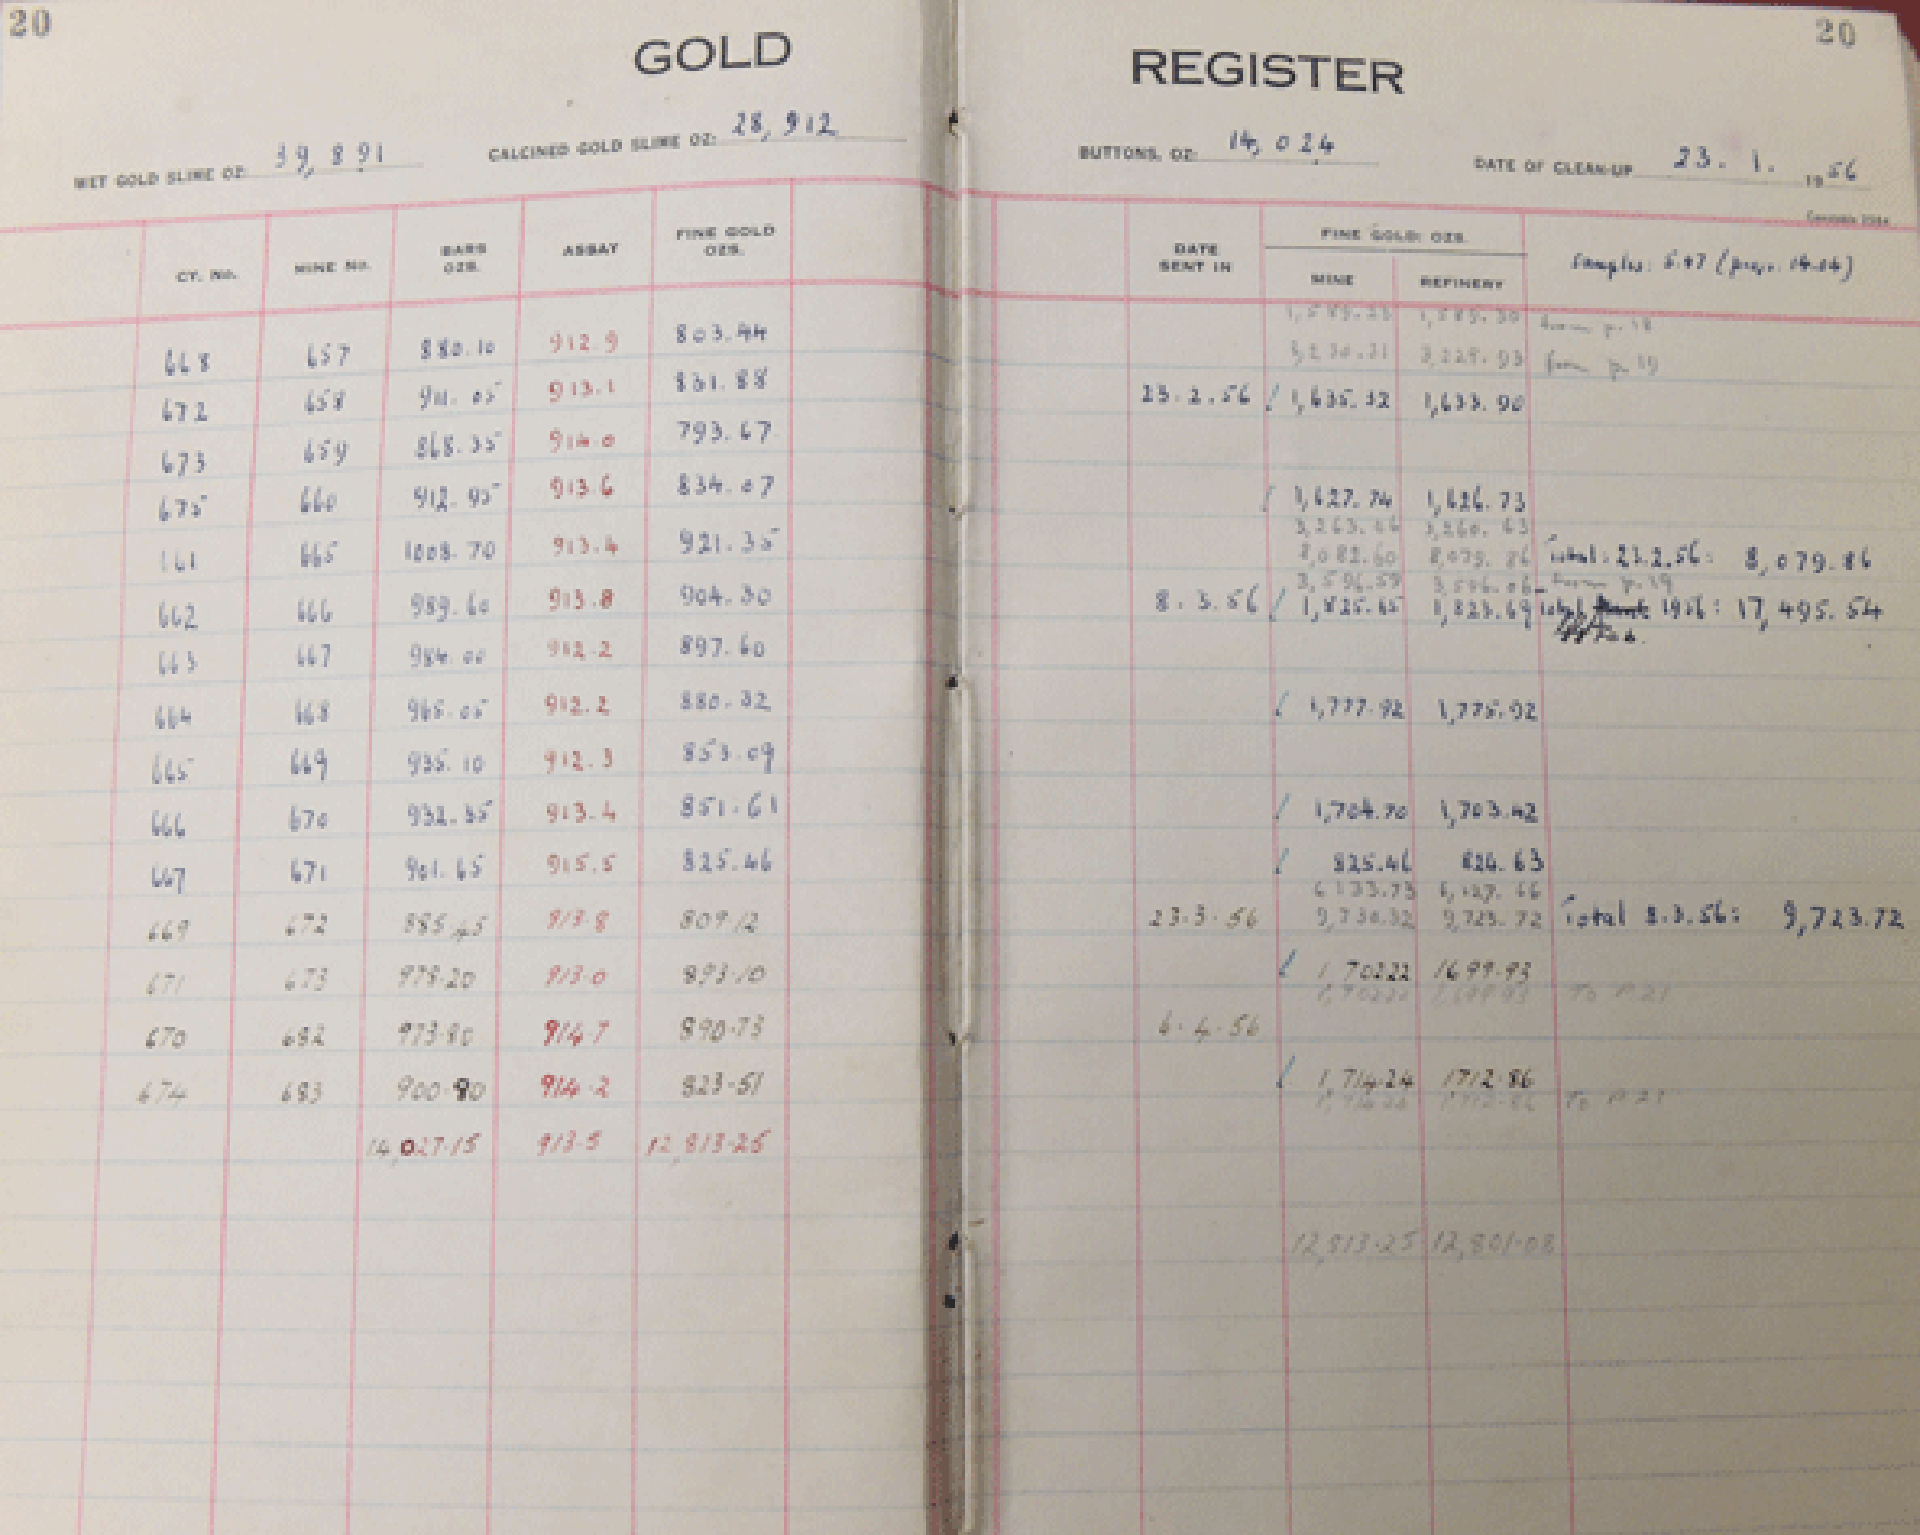 20
GOLD
WET GOLD SLIME OZ: 39,891 CALCINED GOLD SLIME OZ: 28,912
CY. No. MINE No. BARS OZS. ASSAY FINE GOLD OZS.
668 657 880.10 912.9 803.44
672 658 911.05 913.1 831.88
673 659 868.35 914.0 793.67
675 660 912.95 913.6 834.07
661 665 1008.70 913.4 921.35
662 666 989.60 913.8 904.30
663 667 984.00 912.2 897.60
664 668 965.05 912.2 880.32
665 669 935.10 912.3 853.09
666 670 932.35 913.4 851.61
667 671 901.65 915.5 825.46
669 672 885.45 913.8 809.12
671 673 978.20 913.0 893.10
670 682 973.80 914.7 890.73
674 683 900.80 914.2 823.51
14,027.15 913.5 12,813.25
20
REGISTER
BUTTONS, OZ: 14,024 DATE OF CLEAN-UP 23.1. 1956
DATE SENT IN FINE GOLD: OZS. MINE REFINERY
Samples: 5.47 (prev. 14.04)
from p.18
3,230.31 3,229.93 from p.19
23.2.56 / 1,635.32 1,633.90
/ 1,627.74 1,626.73
3,263.06 3,260.63
8,082.60 8,079.86 Total: 23.2.56: 8,079.86
3,596.59 3,596.06 from p.19
8.3.56 / 1,825.65 1,823.69 Total 1956: 17,495.54
Feb.
/ 1,777.92 1,775.92
/ 1,704.70 1,703.42
/ 825.46 824.63
6133.73 6,127.66
23.3.56 9,730.32 9,723.72 Total 8.3.56: 9,723.72
/ 1,702.22 1699.93
1,702.22 1,699.93 To P.21
6.4.56
/ 1,714.24 1712.86
1,714.24 1,712.86 To P.21
12,813.25 12,801.08